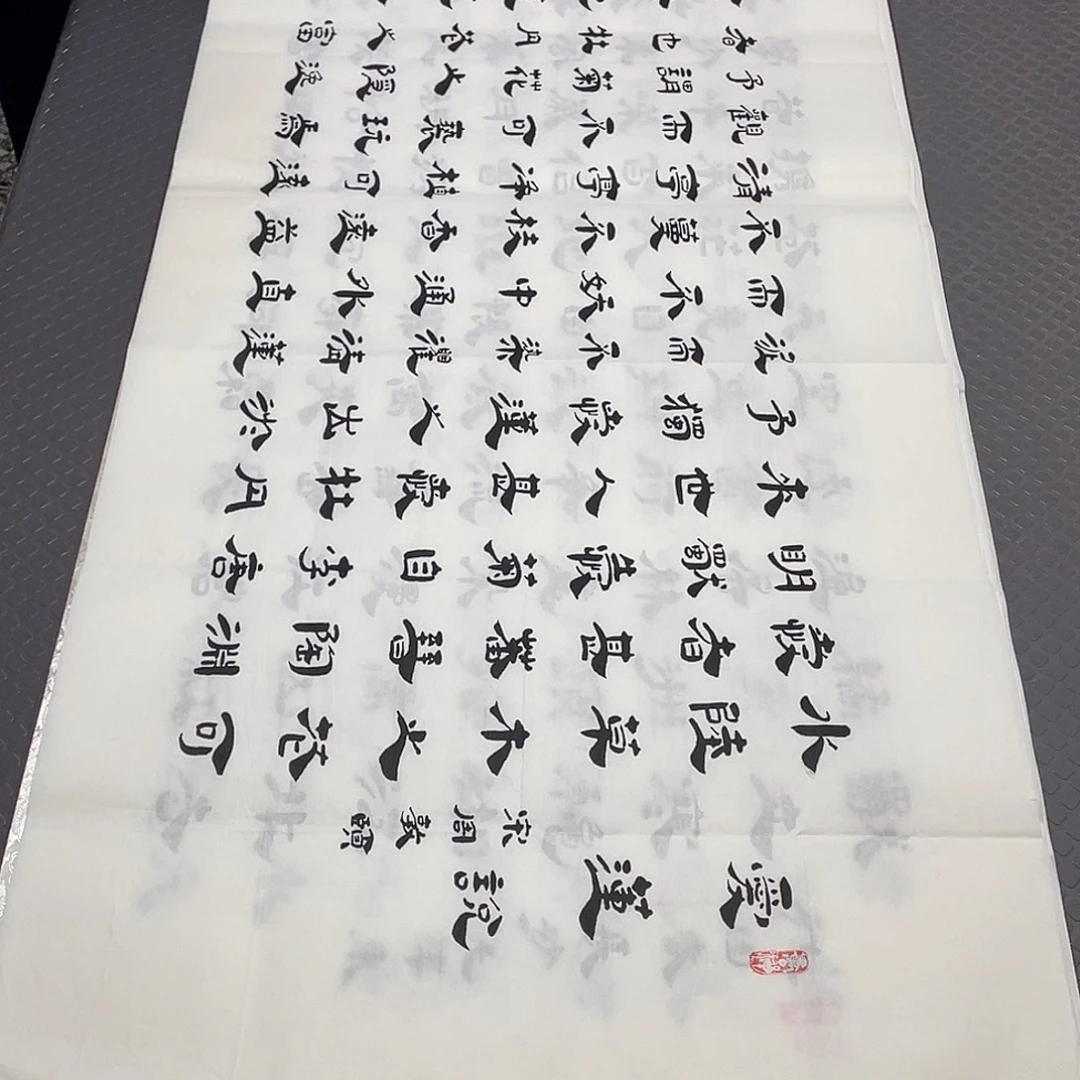 愛蓮說
宋周敦頤
水陸草木之花可
愛者甚蕃晉陶淵
明獨愛菊自李唐
来世人甚愛牡丹
予獨愛蓮之出淤
泥而不染濯清漣
而不妖中通外直
不蔓不枝香遠益
清亭亭淨植可遠
觀而不可褻玩焉
予謂菊花之隱逸
者也牡丹花之富